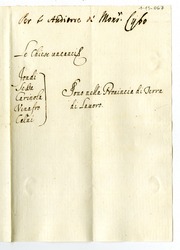 Per l'Auditore di Mons.r Cybo
Le Chiese vacanti
Fondi
Sessa
Carinola
Venafro
Calvi
Sono nella Provincia di Terra
di Lavoro.